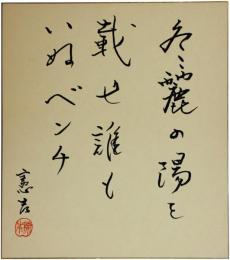 冬麗の陽を
載せ誰も
いぬベンチ
憲吉